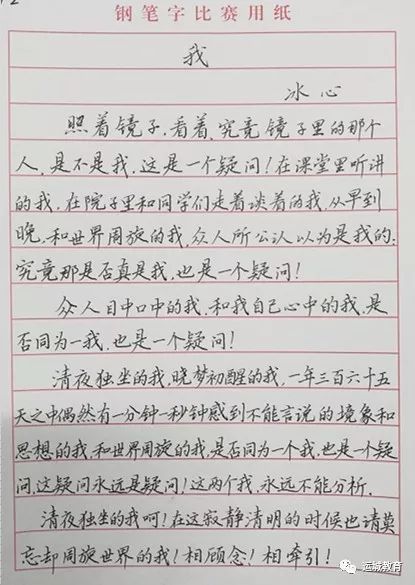 钢笔字比赛用纸
我
冰心
照着镜子,看着,究竟镜子里的那个
人,是不是我.这是一个疑问!在课堂里听讲
的我,在院子里和同学们走着谈着的我,从早到
晚,和世界周旋的我,众人所公认以为是我的:
究竟那是否真是我,也是一个疑问!
众人目中口中的我,和我自己心中的我,是
否同为一我,也是一个疑问!
清夜独坐的我,晓梦初醒的我,一年三百六十五
天之中偶然有一分钟一秒钟感到不能言说的境象和
思想的我,和世界周旋的我,是否同为一个我,也是一个疑
问,这疑问永远是疑问!这两个我,永远不能分析.
清夜独坐的我呵!在这寂静清明的时候也请莫
忘却周旋世界的我!相顾念!相牵引!
运城教育